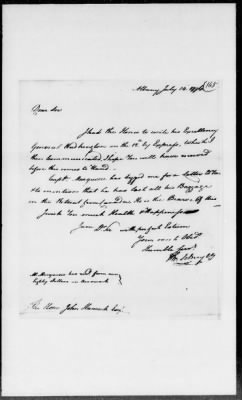 Albany July 14. 1776 165
Dear Sir
I had the Honor to write his Excellency
General Washington on the 12th by Express, which I
then communicated, I hope You will have received
before this comes to Hand.
Capt. has begged me for a Letter to You
& to mention that he has lost all his Baggage
in the Retreat from Canada He is the Bearer of this
I wish You much Health & Happiness
I am D Sir with perfect Esteem
Your most Obed.
Humble Serv.
Ph: Schuyler
has had from me
Eighty Dollars on account
The Hon: John Hancock Esq.